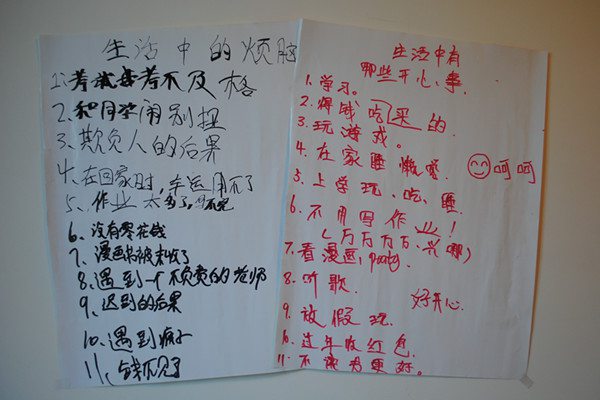 生活中的烦脑
1、考试考不及格
2、和同学闹别扭
3、欺负人的后果
4、在回家时,车运用不了
5、作业太多了,
6、没有零花钱
7、漫画书被末收了
8、遇到一个不负责的老师
9、迟到的后果
10、遇到疯子
11、钱不见了
生活中有
哪些开心事
1、学习。
2、得钱吃 的
3、玩游戏。
4、在家睡懒觉 呵呵
5、上学玩、吃、睡
6、不用写作业!
(万万万万、 哪)
7、看漫画, party
8、听歌. 好开心.
9、放假玩.
10、过年收红包.
11、不 更好。